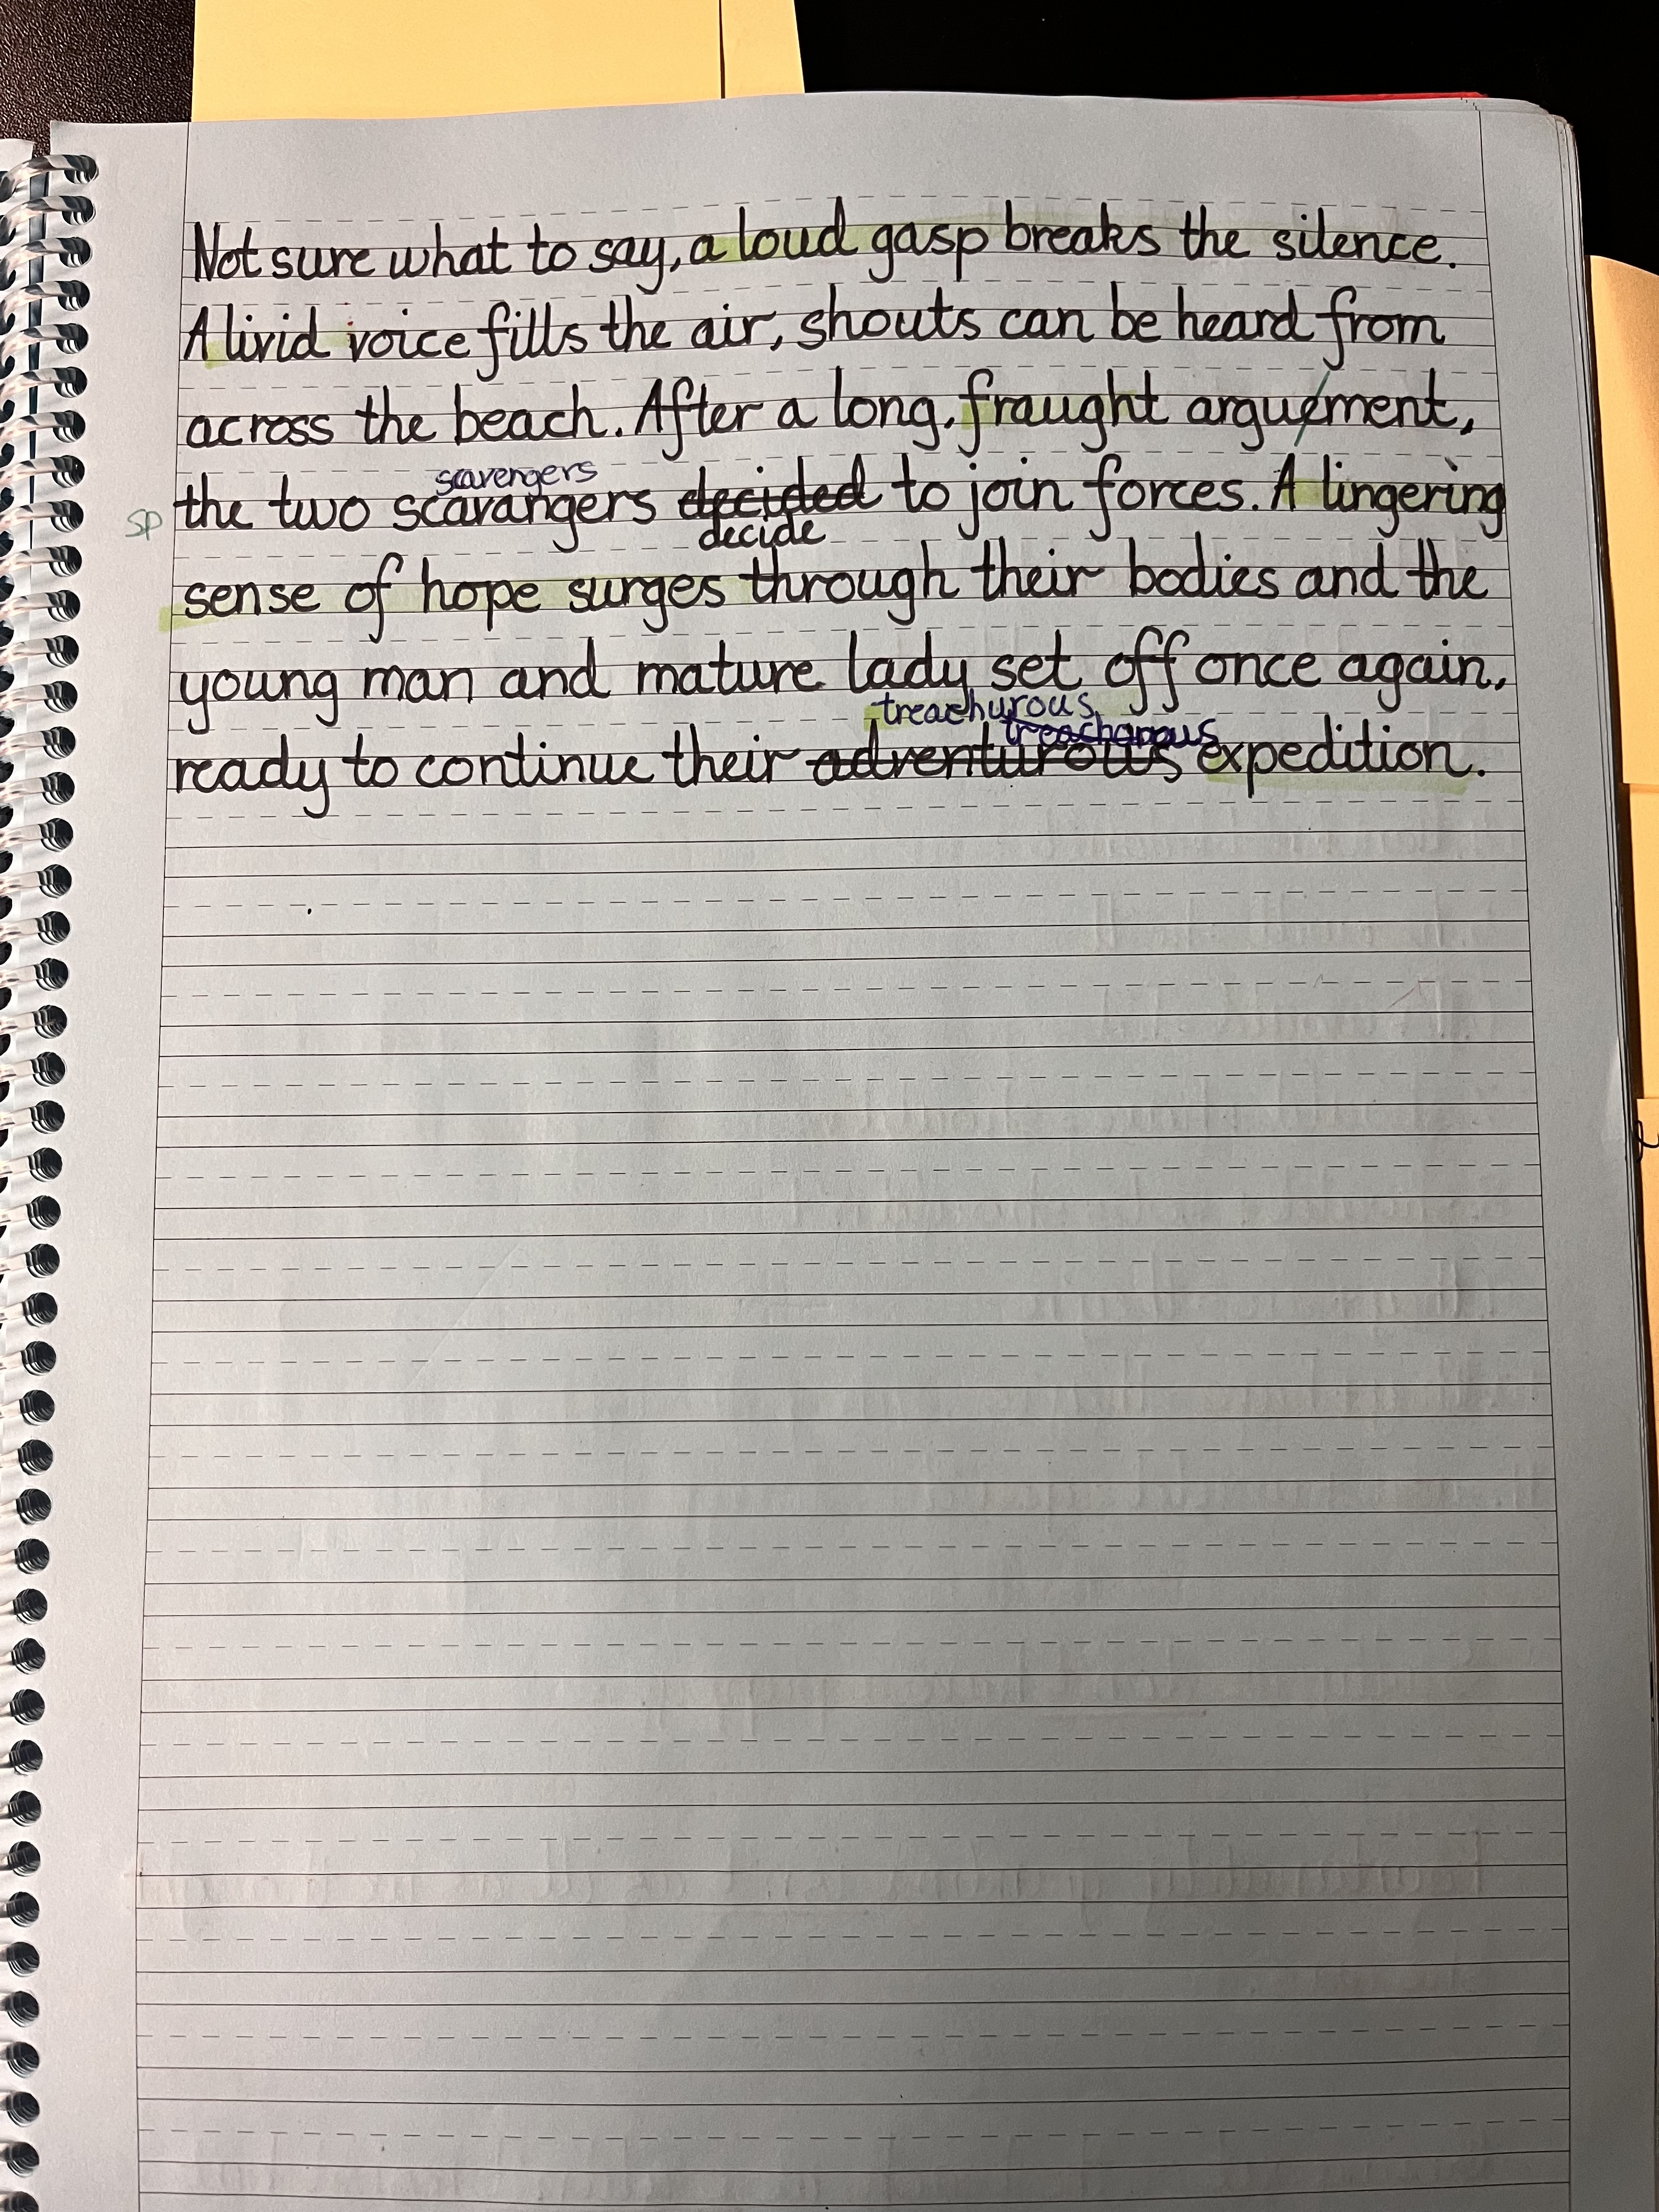 Not sure what to say, a loud gasp breaks the silence.
A livid voice fills the air, shouts can be heard from
across the beach. After a long, fraught arguement,
scavengers
sp the two scavangers decided to join forces. A lingering
decide
sense of hope surges through their bodies and the
young man and mature lady set off once again,
treachurous
treacharous
ready to continue their adventurous expedition.